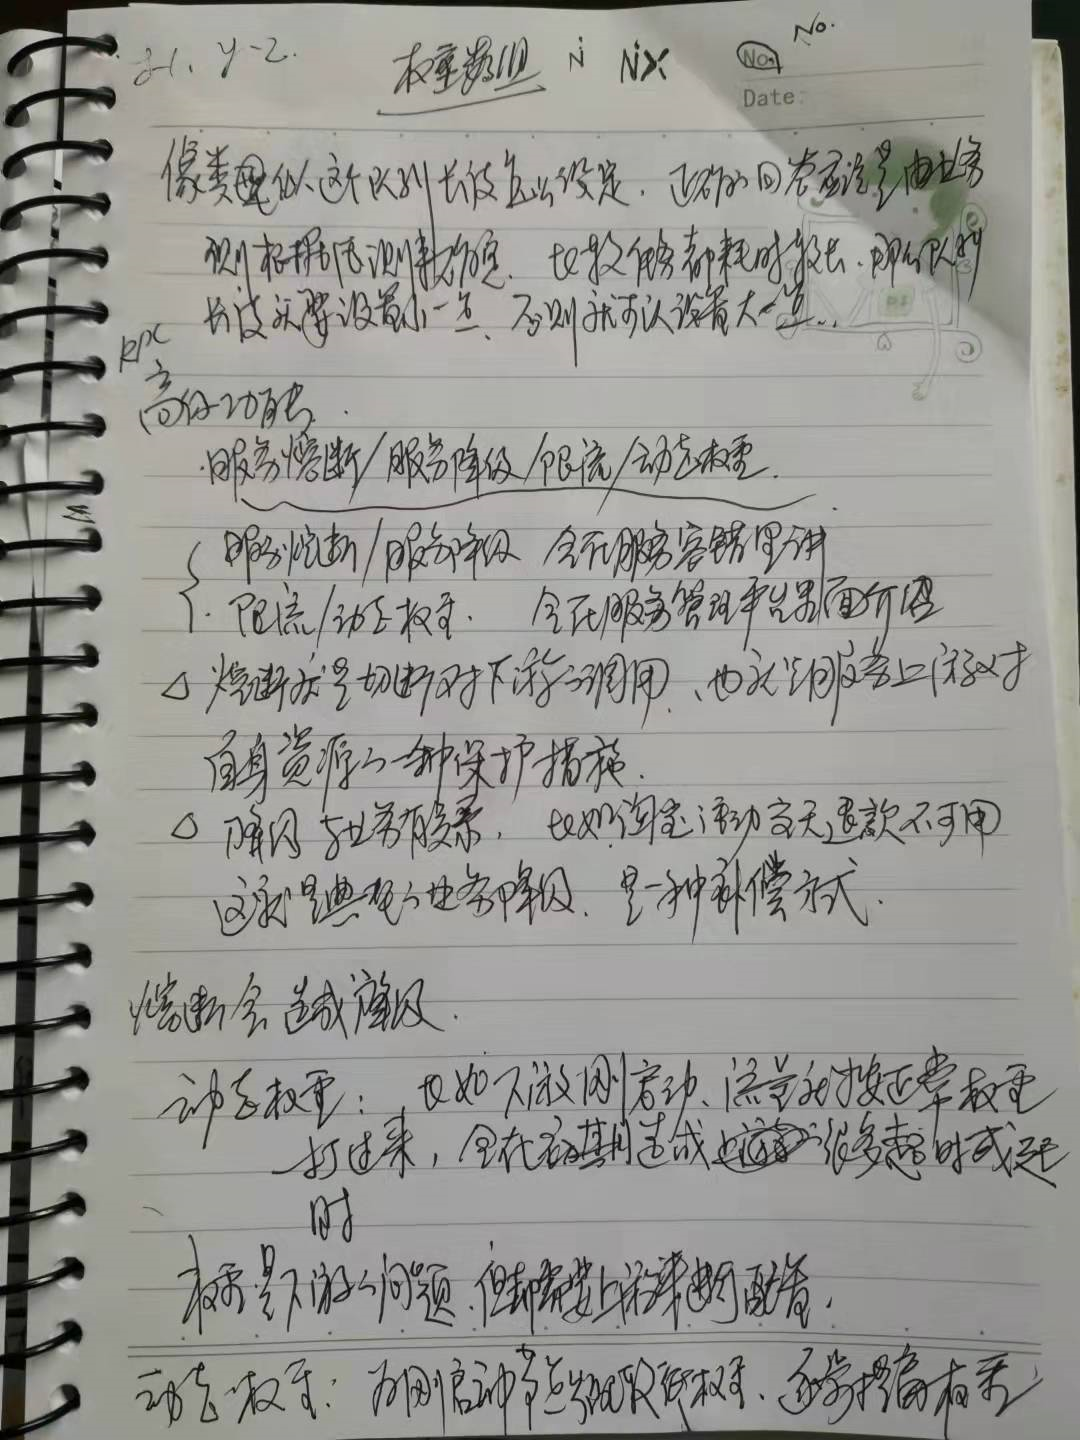 y-2. 权重数组 N NX No. No.
Date:
像类似这个队列长度怎么设定,正确的回答应该是由业务
根据压测数据定.比较任务都耗时较长,那么队列
长度就要设置小一点,否则就可以设置大一点..
RPC
高级功能.
·服务熔断/服务降级/限流/动态权重.
服务熔断/服务降级 会在服务容错里讲
·限流/动态权重. 会在服务管理平台里面介绍
△ 熔断就是切断对下游的调用、也就是服务上游对
自身资源的一种保护措施.
△ 降级与业务有关系,比如淘宝活动当天退款不可用
这就是典型的业务降级.是一种补偿方式.
熔断会造成降级.
动态权重:比如下游刚启动、流量就按正常权重
打过来,会在启动期造成很多超时或延
时
权重是下游的问题,但却需要上游来进行配置.
动态权重:为刚启动节点降低权重、逐步提高权重